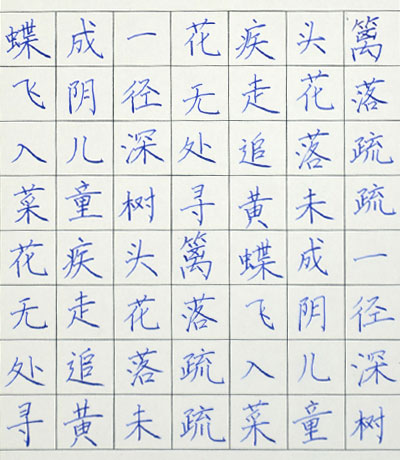 篱落疏疏一径深树
头花落未成阴儿童
疾走追黄蝶飞入菜
花无处寻篱落疏疏
一径深树头花落未
成阴儿童疾走追黄
蝶飞入菜花无处寻